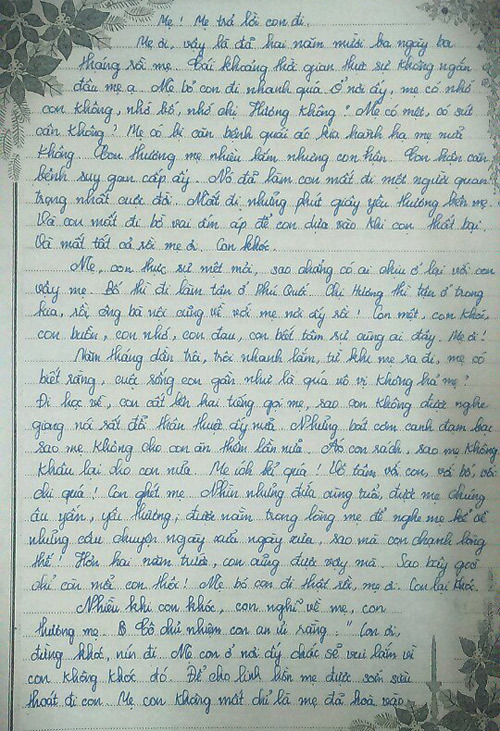 Mẹ! Mẹ trả lời con đi.
Mẹ ơi, vậy là đã hai năm mười ba ngày ba
tháng rồi mẹ. Cái khoảng thời gian thực sự không ngắn
đâu mẹ ạ. Mẹ bỏ con đi nhanh quá. Ở nơi ấy, mẹ có nhớ
con không, nhớ bố, nhớ chị Hương không? Mẹ có mệt, có sút
cân không? Mẹ có bị căn bệnh quái ác kia hành hạ mẹ nữa
không. Con thương mẹ nhiều lắm nhưng con hận. Con hận căn
bệnh suy gan cấp ấy. Nó đã làm con mất đi một người quan
trọng nhất cuộc đời. Mất đi những phút giây yêu thương bên mẹ.
Và con mất đi bờ vai ấm áp để con dựa vào khi con thất bại.
Và mất tất cả rồi mẹ ơi. Con khóc.
Mẹ, con thực sự mệt mỏi, sao chẳng có ai chịu ở lại với con
vậy mẹ. Bố thì đi làm tận ở Phú Quốc. Chị Hương thì tận ở trong
kia, rồi ông bà nội cũng về với mẹ nơi ấy rồi! Con mệt, con khóc,
con buồn, con nhớ, con đau, con biết tâm sự cùng ai đây. Mẹ ơi!
Năm tháng dần trôi, trôi nhanh lắm, từ khi mẹ ra đi, mẹ có
biết rằng, cuộc sống con gần như là quá vô vị không hả mẹ?
Đi học về, con cất lên hai tiếng gọi mẹ, sao con không được nghe
giọng nói sắt đá thân thuộc ấy nữa. Những bát cơm canh đạm bạc
sao mẹ không cho con ăn thêm lần nữa. Áo con rách, sao mẹ không
khâu lại cho con nữa. Mẹ ích kỉ quá! Vô tâm với con, với bố, với
chị quá! Con ghét mẹ. Nhìn những đứa cùng tuổi, được mẹ chúng
âu yếm, yêu thương, được nằm trong lòng mẹ để nghe mẹ kể về
những câu chuyện ngày xửa ngày xưa, sao mà con chạnh lòng
thế! Hơn hai năm trước, con cũng được vậy mà. Sao bây giờ
chỉ còn mỗi con thôi! Mẹ bỏ con đi thật rồi, mẹ ơi. Con lại khóc.
Nhiều khi con khóc, con nghĩ về mẹ, con
thương mẹ. Cô chủ nhiệm con an ủi rằng: " Con ơi,
đừng khóc, nín đi. Mẹ con ở nơi ấy chắc sẽ vui lắm vì
con không khóc đó. Để cho linh hồn mẹ được sớm siêu
thoát đi con. Mẹ con không mất chỉ là mẹ đã hoà vào